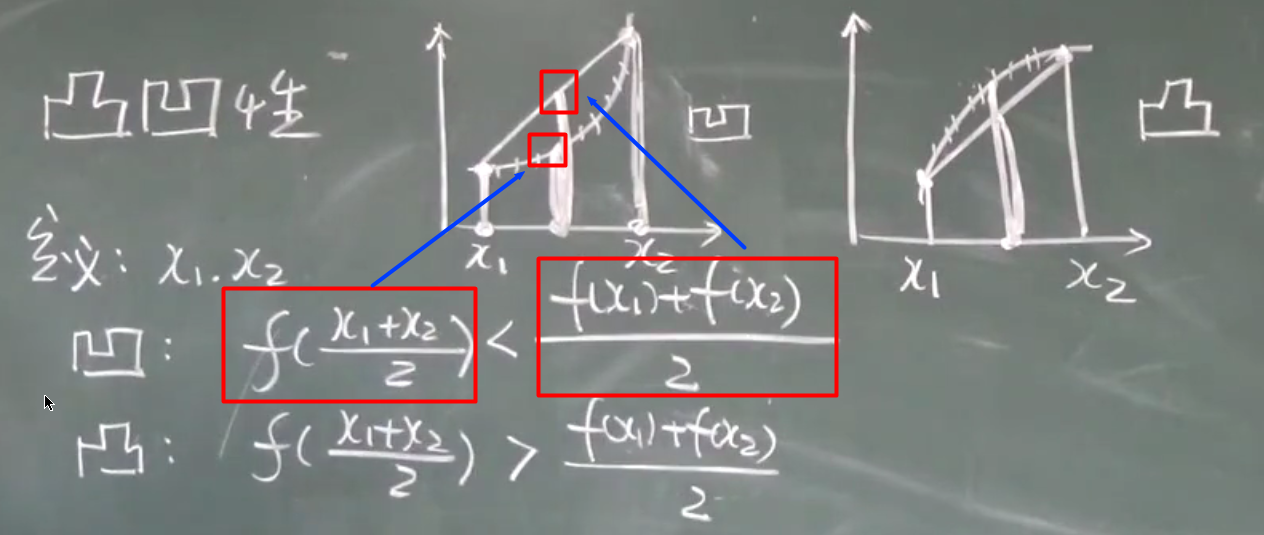 凸凹性
凹
凸
x₁ x₂
x₁ x₂
定义: x₁. x₂
凹: f((x₁+x₂)/2) < (f(x₁)+f(x₂))/2
凸: f((x₁+x₂)/2) > (f(x₁)+f(x₂))/2